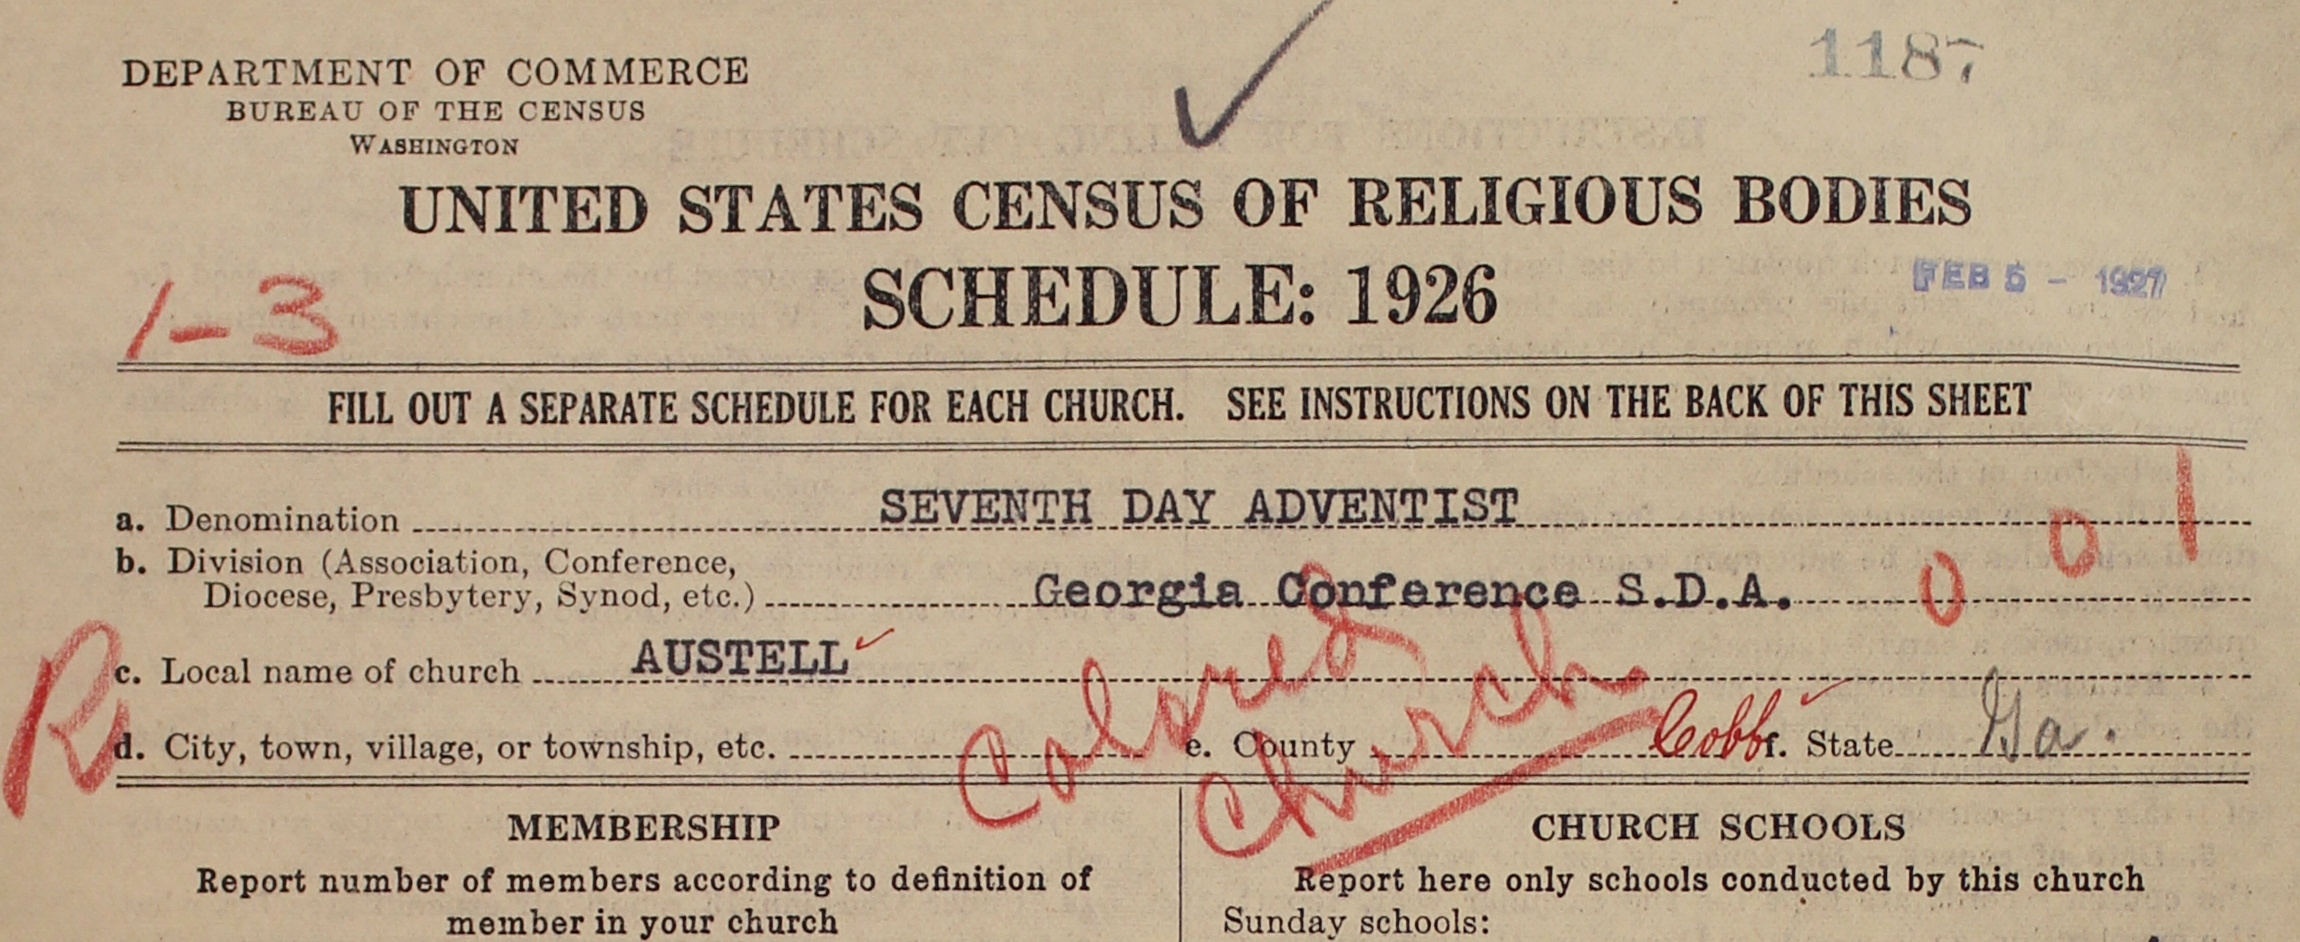 1187
DEPARTMENT OF COMMERCE
BUREAU OF THE CENSUS
WASHINGTON
UNITED STATES CENSUS OF RELIGIOUS BODIES
SCHEDULE: 1926
FEB 5 - 1927
1-3
FILL OUT A SEPARATE SCHEDULE FOR EACH CHURCH. SEE INSTRUCTIONS ON THE BACK OF THIS SHEET
a. Denomination SEVENTH DAY ADVENTIST
b. Division (Association, Conference,
Diocese, Presbytery, Synod, etc.) Georgia Conference S.D.A.
001
R
c. Local name of church AUSTELL
Colored
Church
d. City, town, village, or township, etc. e. County Cobb f. State Ga.
MEMBERSHIP
Report number of members according to definition of
member in your church
CHURCH SCHOOLS
Report here only schools conducted by this church
Sunday schools: